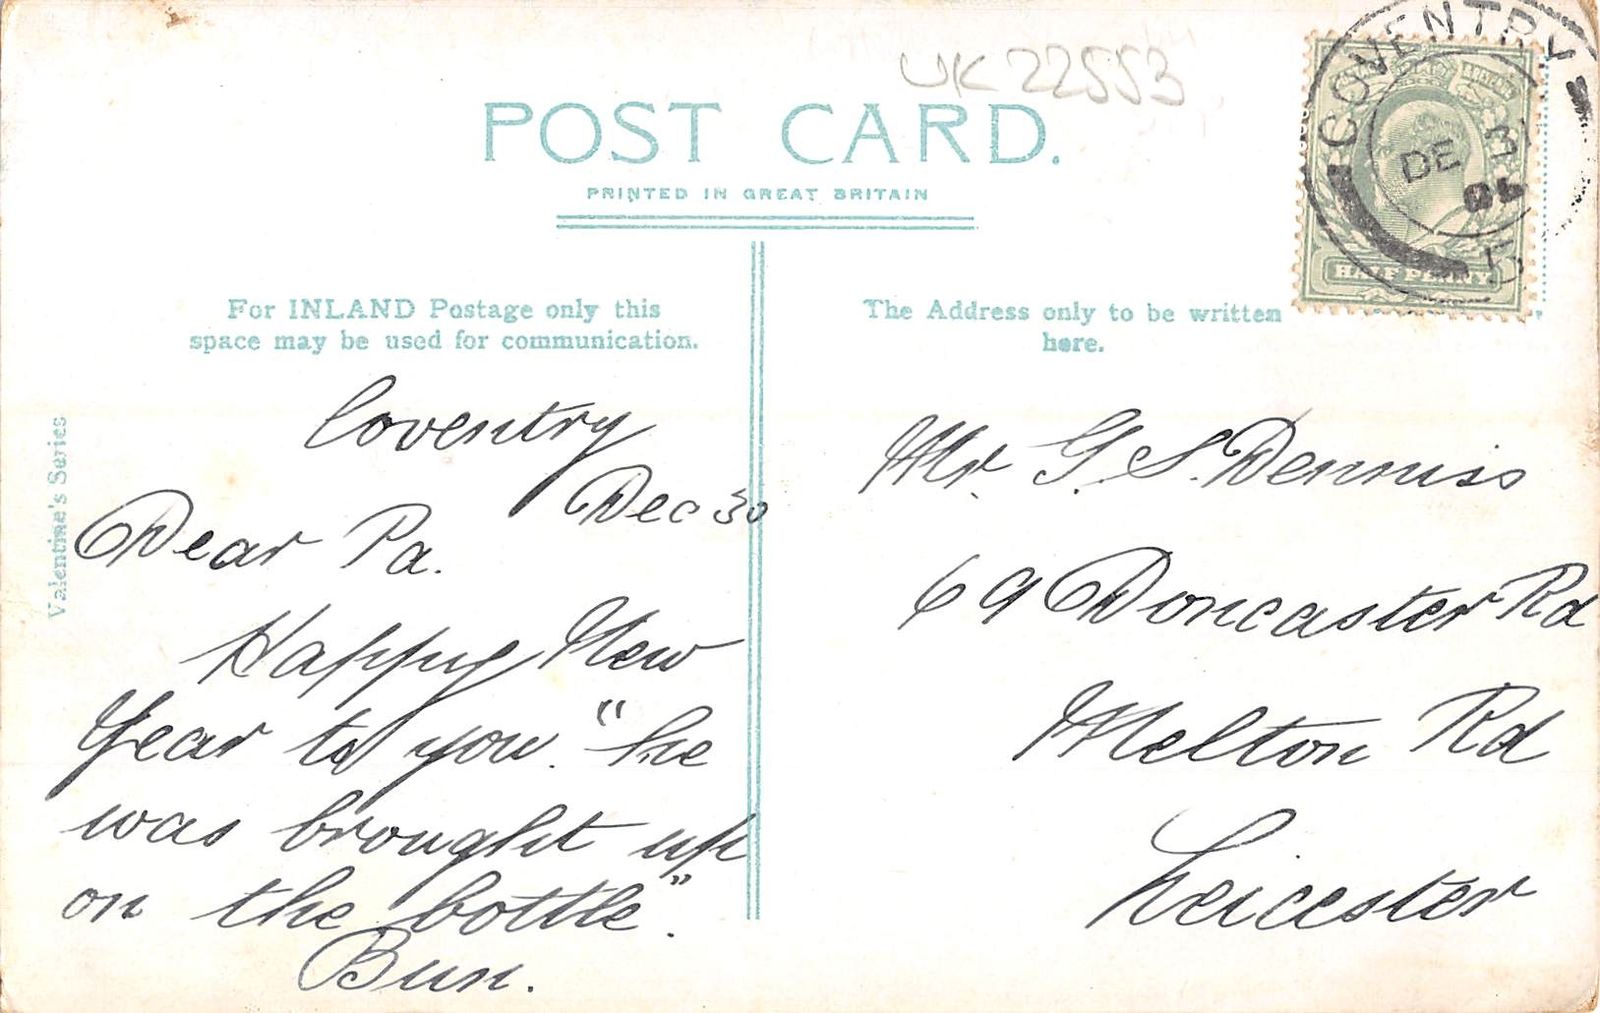 UK 22553
POST CARD.
PRINTED IN GREAT BRITAIN
COVENTRY
DE 31
HALF PENNY
For INLAND Postage only this
space may be used for communication.
The Address only to be written
here.
Valentine's Series
Coventry
Dec 30
Dear Pa.
Happy New
Year to you. "he
was brought up
on the bottle".
Bun.
Mr. G. S. Denniss
69 Doncaster Rd
Melton Rd
Leicester